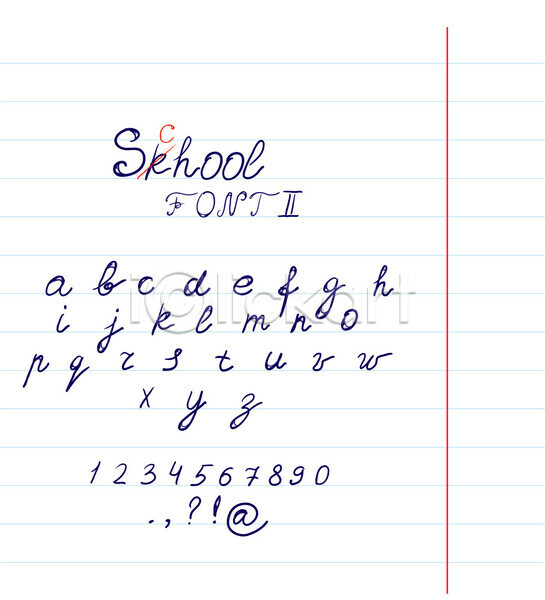 Skhool
c
FONT II
a b c d e f g h
i j k l m n o
p q r s t u v w
x y z
1 2 3 4 5 6 7 8 9 0
. , ? ! @
iclickart